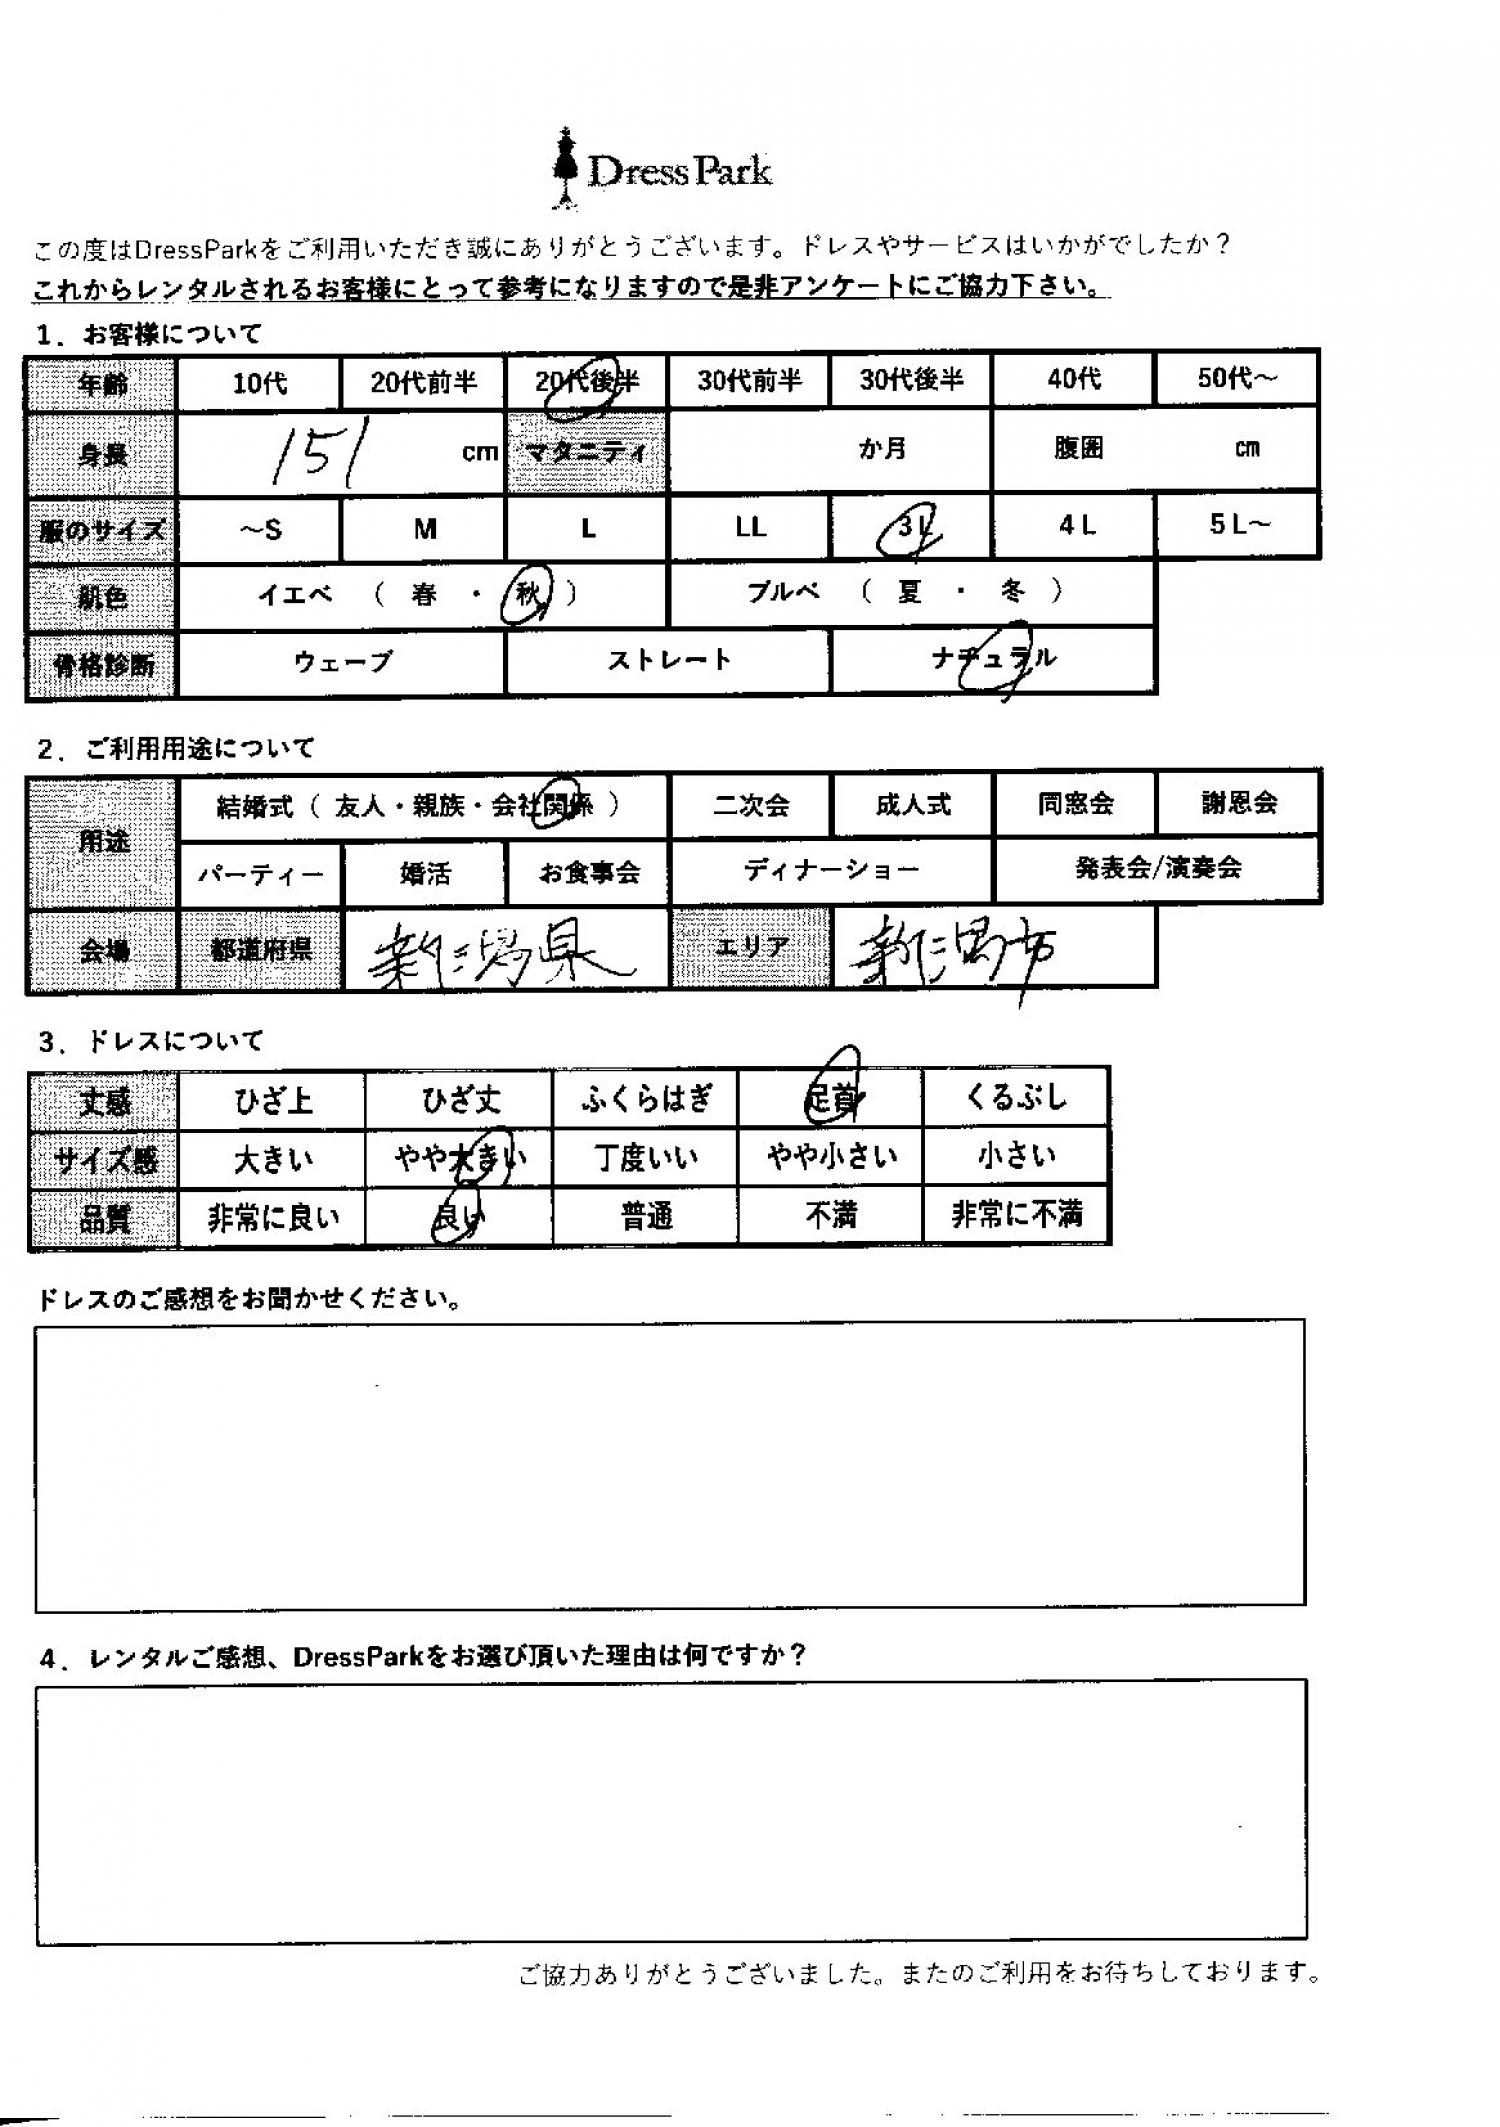 DressPark
この度はDressParkをご利用いただき誠にありがとうございます。ドレスやサービスはいかがでしたか？
これからレンタルされるお客様にとって参考になりますので是非アンケートにご協力下さい。
1．お客様について
年齢 10代 20代前半 20代後半 30代前半 30代後半 40代 50代～
身長 151 cm マタニティ か月 腹囲 cm
服のサイズ ～S M L LL 3L 4L 5L～
肌色 イエベ （ 春 ・ 秋 ） ブルベ （ 夏 ・ 冬 ）
骨格診断 ウェーブ ストレート ナチュラル
2．ご利用用途について
用途 結婚式（ 友人・親族・会社関係 ） 二次会 成人式 同窓会 謝恩会
パーティー 婚活 お食事会 ディナーショー 発表会/演奏会
会場 都道府県 新潟県 エリア 新潟市
3．ドレスについて
丈感 ひざ上 ひざ丈 ふくらはぎ 足首 くるぶし
サイズ感 大きい やや大きい 丁度いい やや小さい 小さい
品質 非常に良い 良い 普通 不満 非常に不満
ドレスのご感想をお聞かせください。
4．レンタルご感想、DressParkをお選び頂いた理由は何ですか？
ご協力ありがとうございました。またのご利用をお待ちしております。